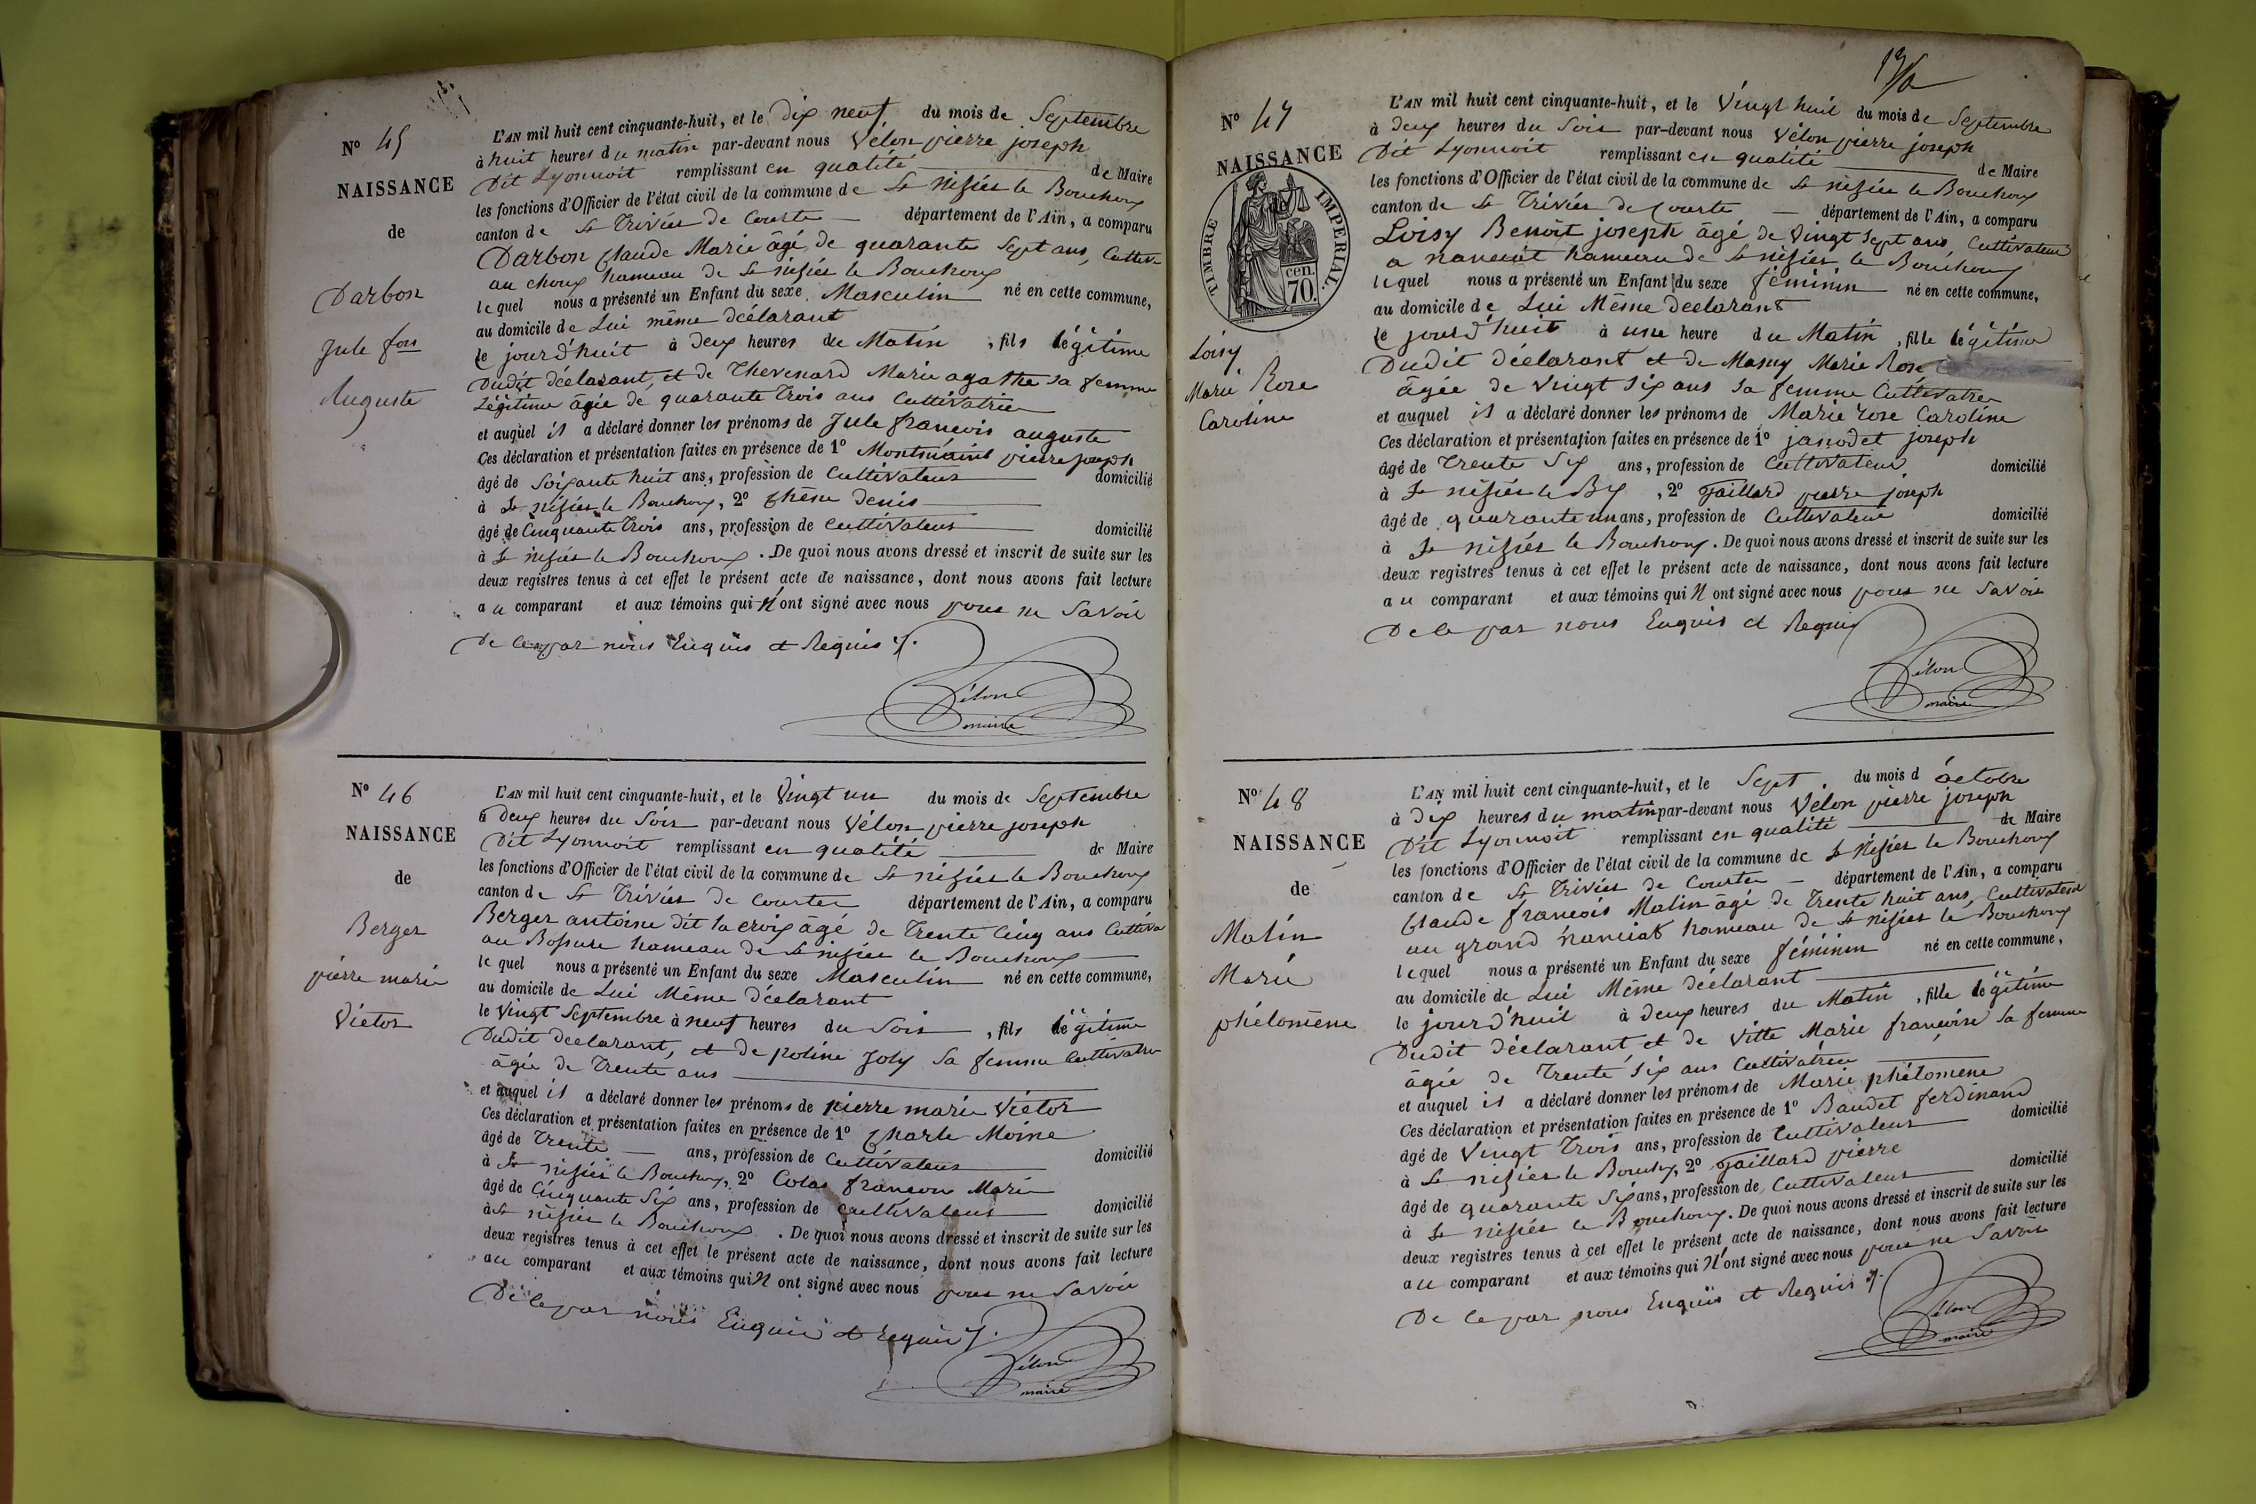 Nº 45
NAISSANCE
de
Darbon
Jule fois
Auguste
L'AN mil huit cent cinquante-huit, et le Dix neuf du mois de Septembre
à huit heures du matin par-devant nous Vélon pierre joseph
Dit Lyonnoit remplissant en qualité de Maire
les fonctions d'Officier de l'état civil de la commune de St Nizier le Bouchoux
canton de St Trivier de Courte département de l'Ain, a comparu
Darbon Claude Marie âgé de quarante Sept ans, Cultiv
au choux hameau de St nizier le Bouchoux
lequel nous a présenté un Enfant du sexe Masculin né en cette commune,
au domicile de Lui même déclarant
le jourd'huit à deux heures du Matin, fils légitime
Dudit déclarant, et de Thevenard Marie agathe sa femme
Légitime âgée de quarante Trois ans Cultivatrice
et auquel il a déclaré donner les prénoms de Jule francois auguste
Ces déclaration et présentation faites en présence de 1º pierre joseph
âgé de Soixante huit ans, profession de Cultivateur domicilié
à St nizier le Bouchoux, 2º Chêne denis
âgé de Cinquante Trois ans, profession de cultivateur domicilié
à St nizier le Bouchoux. De quoi nous avons dressé et inscrit de suite sur les
deux registres tenus à cet effet le présent acte de naissance, dont nous avons fait lecture
au comparant et aux témoins qui N'ont signé avec nous pour ne Savoir
De ce par nous Enquis et Requis
Vélon
maire
Nº 46
NAISSANCE
de
Berger
pierre marie
Victor
L'AN mil huit cent cinquante-huit, et le Vingt un du mois de Septembre
à Deux heures du Soir par-devant nous Vélon pierre joseph
Dit Lyonnoit remplissant en qualité de Maire
les fonctions d'Officier de l'état civil de la commune de St nizier le Bouchoux
canton de St Trivier de Courte département de l'Ain, a comparu
Berger antoine dit la croix âgé de Trente Cinq ans Cultiva
au hameau de St nizier le Bouchoux
lequel nous a présenté un Enfant du sexe Masculin né en cette commune,
au domicile de Lui Même Déclarant
le Vingt Septembre à neuf heures du Soir, fils légitime
Dudit déclarant, et de poline Joly Sa femme Cultivatrice
âgée de Trente ans
et auquel il a déclaré donner les prénoms de pierre marie Victor
Ces déclaration et présentation faites en présence de 1º Charle Moine
âgé de Trente ans, profession de Cultivateur domicilié
à St nizier le Bouchoux, 2º Colas francois Marie
âgé de Cinquante Six ans, profession de cultivateur domicilié
à St nizier le Bouchoux. De quoi nous avons dressé et inscrit de suite sur les
deux registres tenus à cet effet le présent acte de naissance, dont nous avons fait lecture
au comparant et aux témoins qui N ont signé avec nous pour ne Savoir
De ce par nous Enquis et requis
Vélon
maire
Nº 47
NAISSANCE
TIMBRE IMPERIAL.
cen.
70.
Loisy
Marie Rose
Caroline
L'AN mil huit cent cinquante-huit, et le Vingt huit du mois de Septembre
à Deux heures du Soir par-devant nous Vélon pierre joseph
Dit Lyonnoit remplissant en qualité de Maire
les fonctions d'Officier de l'état civil de la commune de St nizier le Bouchoux
canton de St Trivier de Courte département de l'Ain, a comparu
Loisy Benoit joseph âgé de Vingt Sept ans, Cultivateur
a nanciat hameau de St nizier le Bouchoux
lequel nous a présenté un Enfant du sexe féminin né en cette commune,
au domicile de Lui Même Déclarant
le jourd'huit à une heure du Matin, fille légitime
Dudit déclarant et de Marie Rose
âgée de Vingt Six ans Sa femme Cultivatrice
et auquel il a déclaré donner les prénoms de Marie rose Caroline
Ces déclaration et présentation faites en présence de 1º janodet joseph
âgé de Trente Six ans, profession de Cultivateur domicilié
à St nizier le Bx, 2º Gaillard pierre joseph
âgé de quarante un ans, profession de Cultivateur domicilié
à St nizier le Bouchoux. De quoi nous avons dressé et inscrit de suite sur les
deux registres tenus à cet effet le présent acte de naissance, dont nous avons fait lecture
au comparant et aux témoins qui N ont signé avec nous pour ne Savoir
De ce par nous Enquis et Requis
Vélon
maire
Nº 48
NAISSANCE
de
Matin
Marie
phélomène
L'AN mil huit cent cinquante-huit, et le Sept du mois d'octobre
à Dix heures du matin par-devant nous Vélon pierre joseph
Dit Lyonnoit remplissant en qualité de Maire
les fonctions d'Officier de l'état civil de la commune de St Nizier le Bouchoux
canton de St Trivier de Courte département de l'Ain, a comparu
Claude francois Matin âgé de Trente huit ans, Cultivateur
au grand nanciat hameau de St nizier le Bouchoux
lequel nous a présenté un Enfant du sexe féminin né en cette commune,
au domicile de Lui Même Déclarant
le jourd'huit à deux heures du Matin, fille légitime
Dudit déclarant et de Vitte Marie françoise Sa femme
âgée de Trente Six ans Cultivatrice
et auquel il a déclaré donner les prénoms de Marie phélomène
Ces déclaration et présentation faites en présence de 1º Baudet ferdinand
âgé de Vingt Trois ans, profession de Cultivateur domicilié
à St nizier le Bouchx, 2º Gaillard pierre
âgé de quarante Six ans, profession de Cultivateur domicilié
à St nizier le Bouchoux. De quoi nous avons dressé et inscrit de suite sur les
deux registres tenus à cet effet le présent acte de naissance, dont nous avons fait lecture
au comparant et aux témoins qui N'ont signé avec nous pour ne Savoir
De ce par nous Enquis et Requis
Vélon
maire